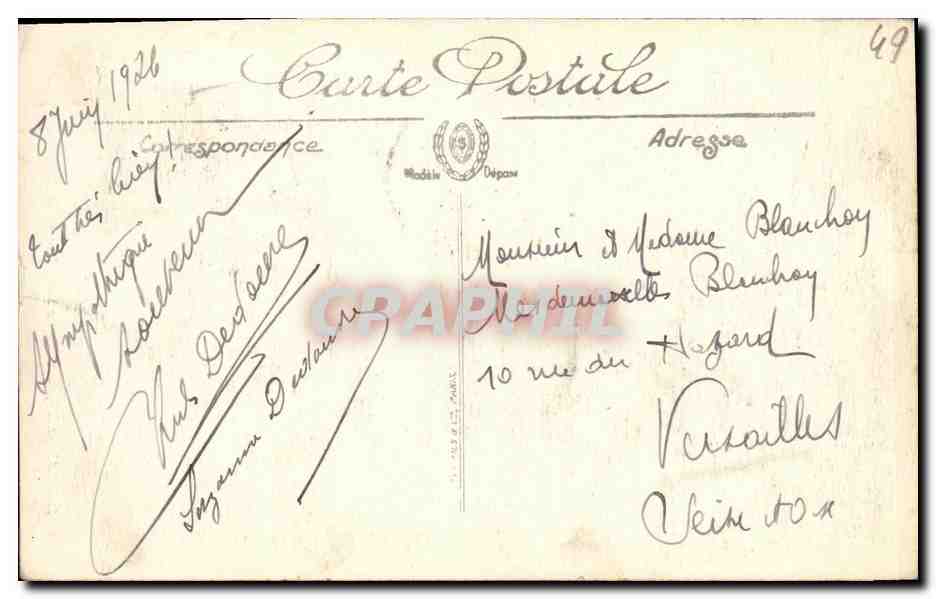 49
Carte Postale
Correspondance
Adresse
Modèle Déposé
8 Juin 1926
Tout très bien !
Sympathique
souvenir
Suzanne
Monsieur et Madame Blanchoy
Mesdemoiselles Blanchoy
10 rue du Hazard
Versailles
Seine et Oise
CPAPHIL